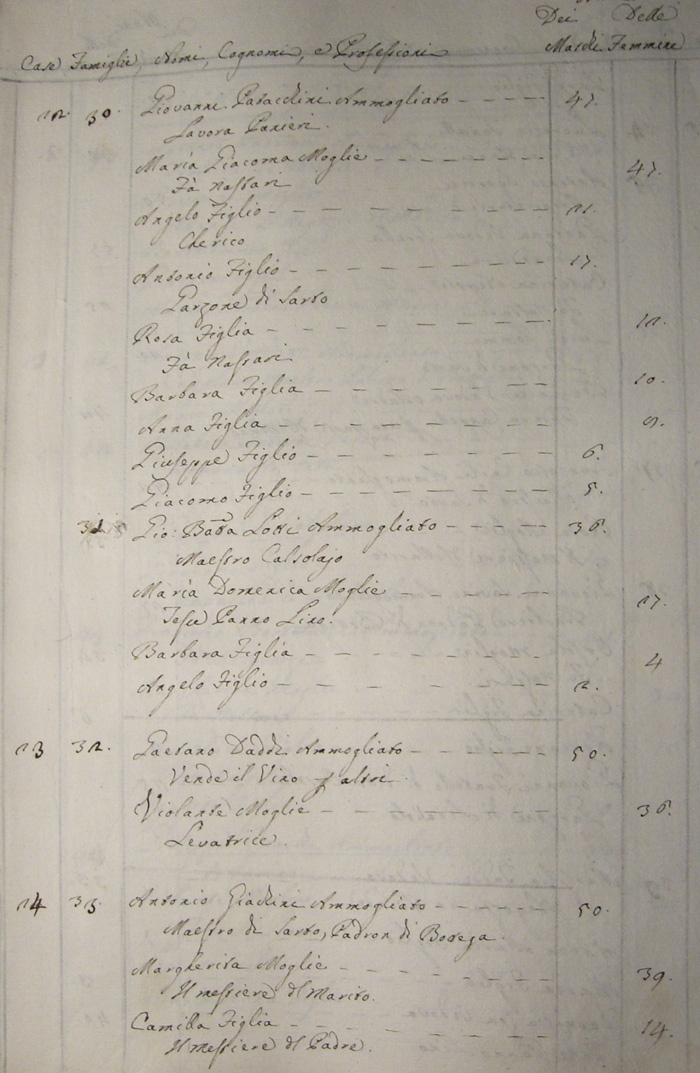 Dei Delle
Case Famiglie, Nomi, Cognomi, e Professioni Maschi Femmine
22. 30. Giovanni Ammogliato 47.
Lavora Panieri.
Maria Giacoma Moglie 47.
Fà Nastari
Angelo Figlio 21.
Cherico
Antonio Figlio 17.
Garzone di Sarto
Rosa Figlia 12.
Fà Nastari
Barbara Figlia 10.
Anna Figlia 9.
Giuseppe Figlio 6.
Giacomo Figlio 5.
31 Gio: Batta Lotti Ammogliato 36.
Maestro Calsolajo
Maria Domenica Moglie 27.
Tesse Panno Lino.
Barbara Figlia 4
Angelo Figlio 2.
23 32. Gaetano Daddi Ammogliato 50.
Vende il Vino p altri
Violante Moglie 36.
Levatrice.
24 33. Antonio Ammogliato 50.
Maestro di Sarto, Padron di Botega
Margherita Moglie 39.
Il mestiere dl Marito.
Camilla Figlia 14.
Il mestiere dl Padre.